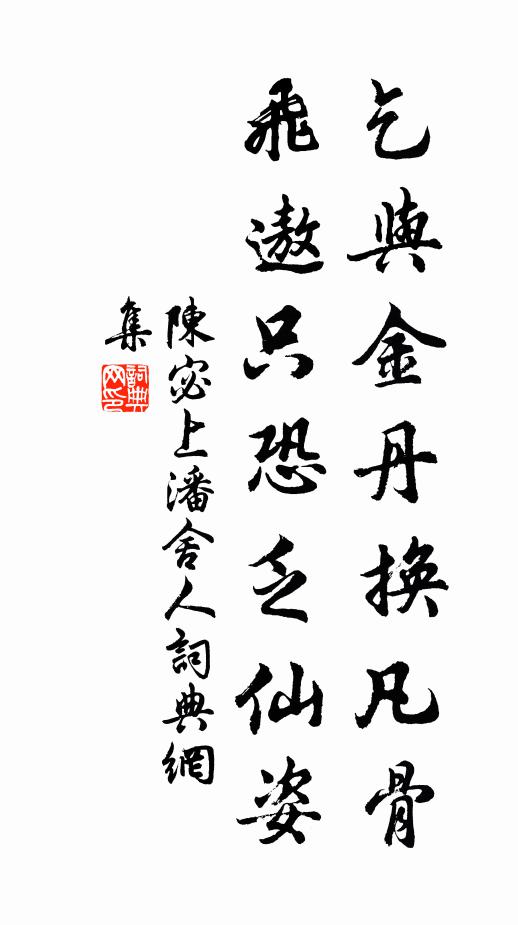 乞與金丹換凡骨
飛遨只恐乏仙姿
陳宓上潘舍人詞典網
集
詞典
网印